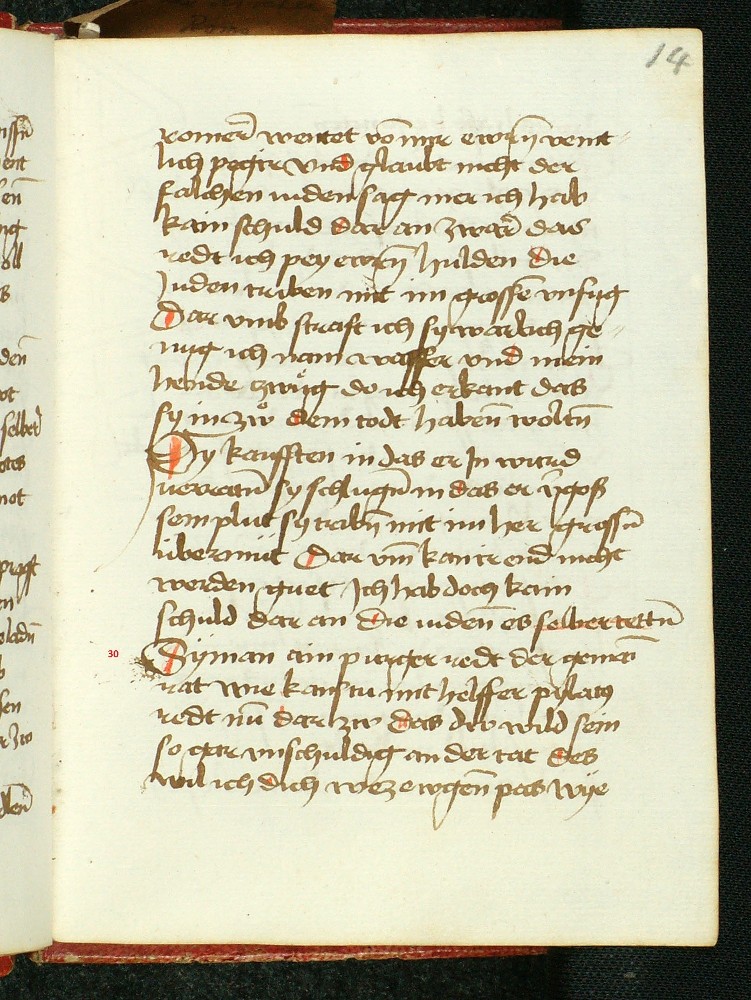 14
romer̄ wentet võ mir ewrñ veint
lich pegir vnd glaubt nicht der
falschen iuden sag mer ich hab
kain schuld dar an zwar̄ das
redt ich pey ewrñ hulden Die
Juden triben mit im grosse vnfug
Dar vmb straft ich sy warlich ge
nug ich nam wasser vnd mein
hende zwůg do ich erkant das
sy in zů dem todt habeñ woltñ
Sy kaufften in das er Jn wurd
verratñ sy schlugñ in das er v̄gos
sein plut sy tribñ mit im her grossñ
übermüt Dar vm̄ kan ir end nicht
werden guet Ich hab doch kain
schuld dar an Die iudeñ es selber tettñ
30
Syman ain purger redt der gemain
rat wie kanstu mit helffer pylatus
redt nū dar zw das dw wild sein
so gar vnschuldig an der tat des
wil ich dich wezewgeñ pas wye